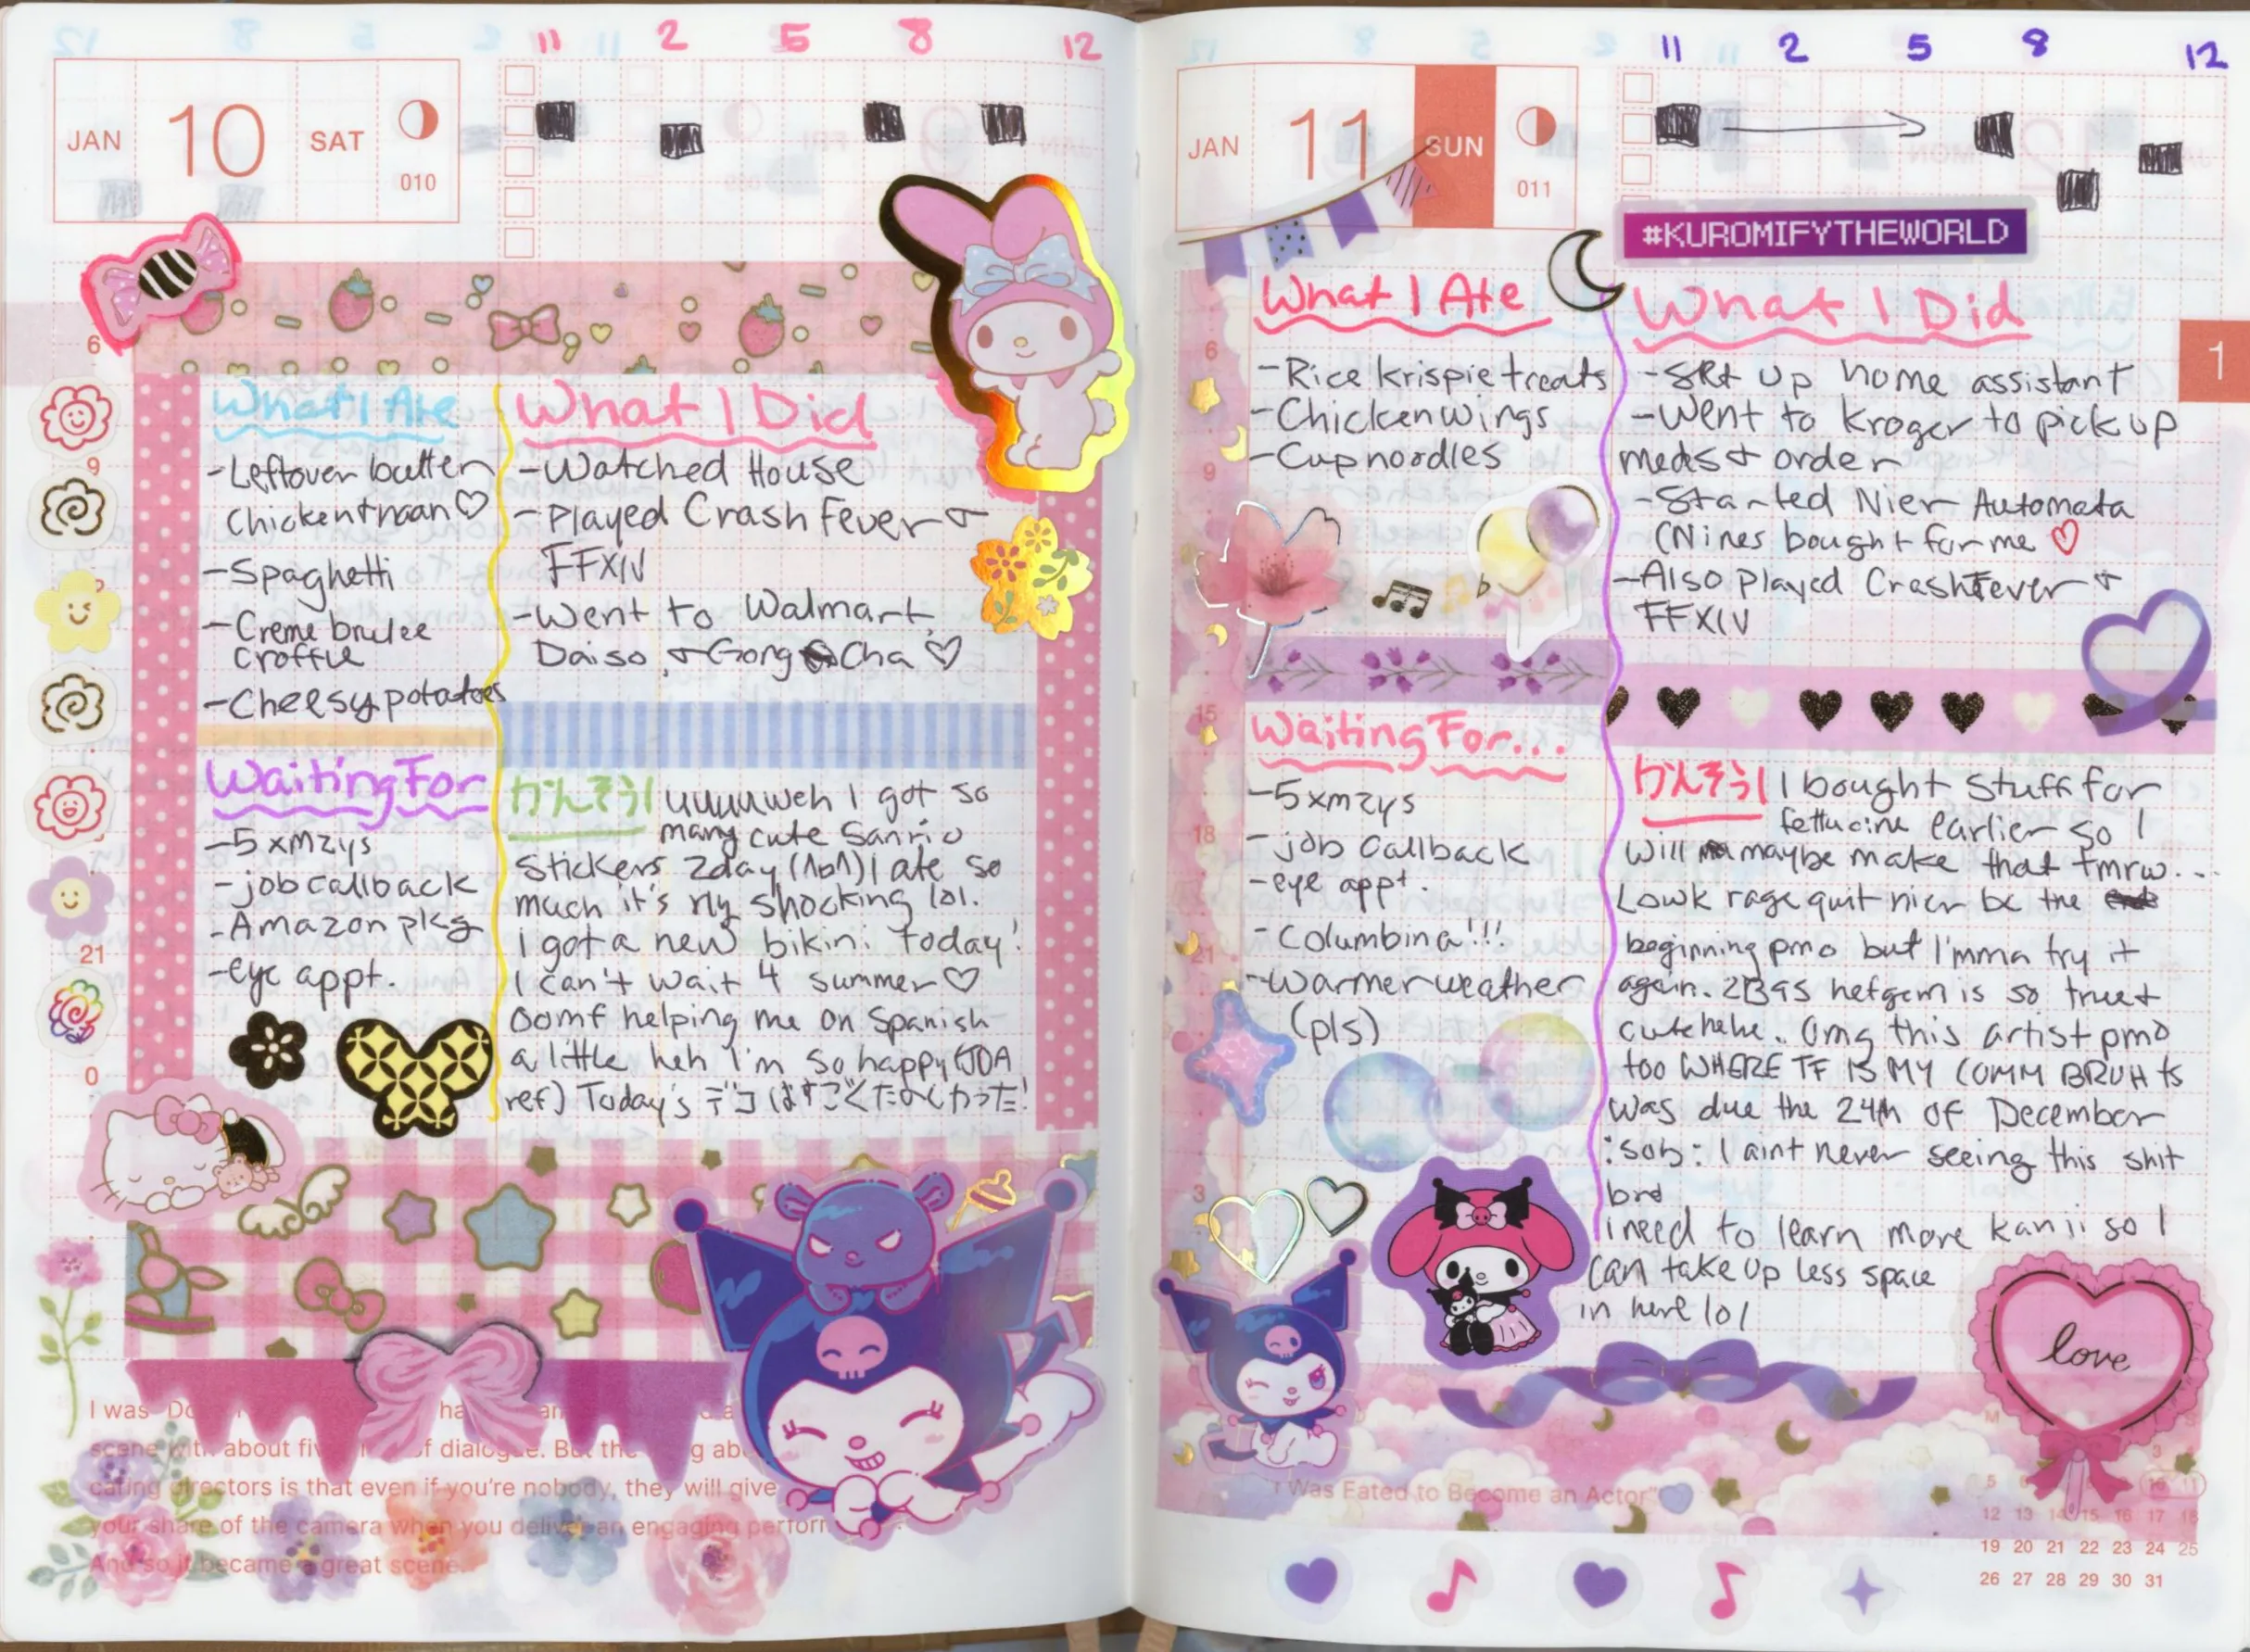 11 2 5 8 12
JAN 10 SAT
010
6
9
21
0
What I Ate
-Leftover butter
chicken + naan♡
-Spaghetti
-Creme brulee
croffle
-Cheesy potatoes
What I Did
-Watched House
-Played Crash Fever &
FFXIV
-Went to Walmart,
Daiso, & Gong Cha ♡
Waiting For
-5 xmzys
-job callback
-Amazon pkg
-eye appt.
かんそう! uuuuweh I got so
many cute Sanrio
Stickers 2day (^o^) I ate so
much it's rly shocking lol.
I got a new bikini today!
I can't wait 4 summer♡
Oomf helping me on Spanish
a little heh I'm so happy (JOA
ref) Today's デコはすごくたのしかった!
I was
scene with about of dialogue. But the
caring directors is that even if you're nobody, they will give
your share of the camera when you deliver an engaging
And so it became a great scene.
11 2 5 8 12
JAN 11 SUN
011
#KUROMIFYTHEWORLD
1
6
9
15
18
21
3
What I Ate
-Rice krispie treats
-Chicken wings
-Cup noodles
What I Did
-Set up home assistant
-Went to Kroger to pick up
meds & order
-Started Nier Automata
(Nines bought for me ♡
-Also played Crash Fever &
FFXIV
Waiting For...
-5 xmzys
-job callback
-eye appt.
-Columbina!!!
-warmer weather
(pls)
かんそう! I bought stuff for
fettucine earlier so I
will maybe make that tmrw...
Lowk rage quit nier bc the
beginning pmo but I'mma try it
again. 2B9S hetgem is so true &
cute hehe. Omg this artist pmo
too WHERE TF IS MY COMM BRUH ts
was due the 24th of December
:sob: I aint never seeing this shit
brd
I need to learn more kanji so I
can take up less space
in here lol
love
"I Was Fated to Become an Actor"
12 13 14 15 16 17 18
19 20 21 22 23 24 25
26 27 28 29 30 31